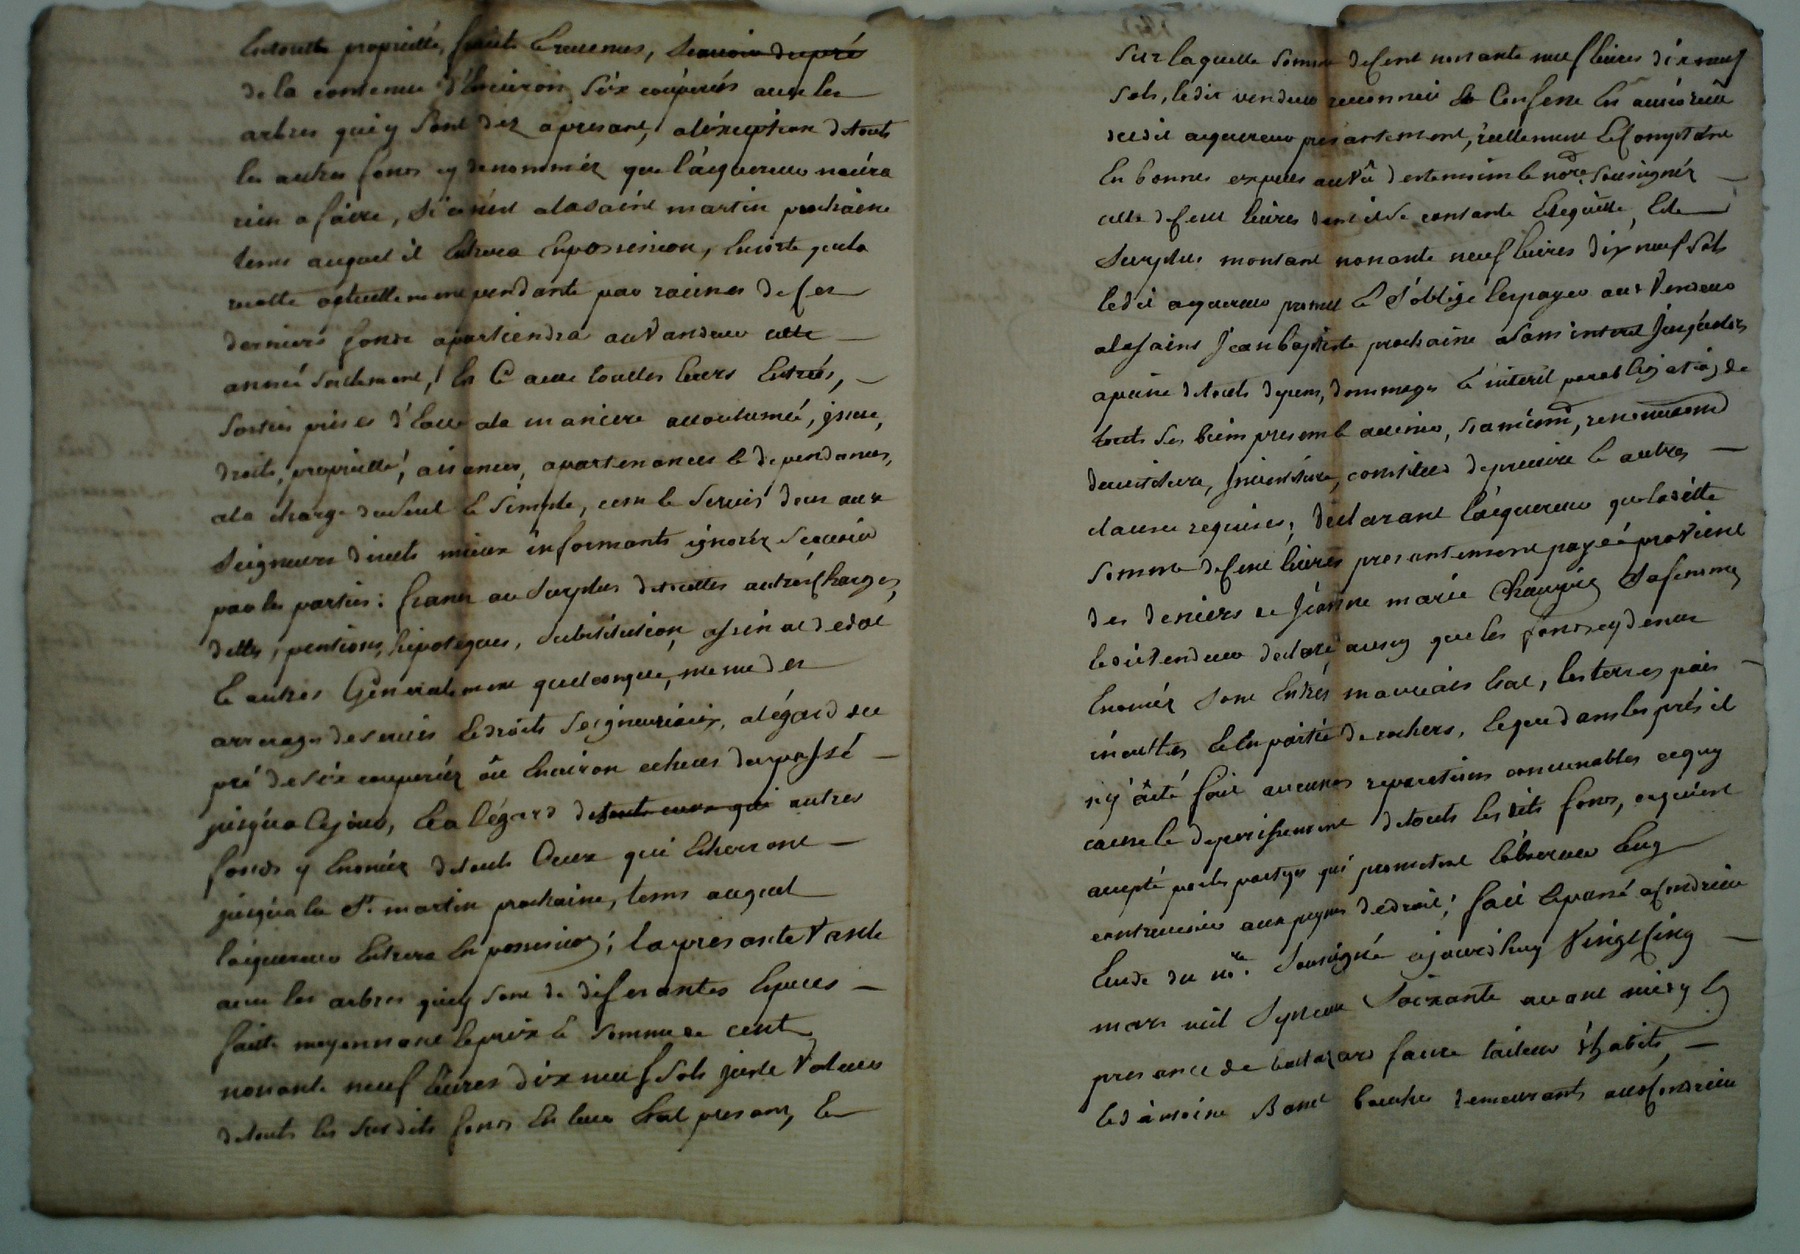 Entoutte propriette, fruits Erevenus, scavoir du pré
de la contenue d'Environ six couperées avec les
arbres quiy sont dez apresant, aléxception detouts
les autres fonds cy denommez que l'acquereur naura
rien a faire, si cenest alasaint martin prochaine
tems auquel il Entrera Enpossession, Ensorte quela
recolte actuellement pendante par racines de ces
derniers fonds apartiendra au Vandeur cette
année seulement, Et Ce avec touttes leurs Entrées,
sorties prises d'Eaux ala maniere accoutumée, issue,
droits, proprietté, aisances, apartenances & dependances,
ala charge du seul & simple, cens & servis deus aux
seigneurs directs mieux informants ignorez scavoir
par les parties: franc au surplus detouttes autres Charges,
dettes, pentions, hipoteques, substitution, assinat de dot
& autres Généralement quelconque, meme des
arrerages deservis & droits seigneuriaux, alégard du
pré de six couperées ou Environ echeus du passé
jusqua Cejour, Et a légard de touts ceux qui autres
fonds y Enoncez detouts Ceux qui Echerront
jusqua la St. martin prochaine, tems auquel
l'acquereur Entrera En possession; la presante Vante
avec les arbres quiy sont de diferantes Especes
faitte moyennant leprix & somme de cent
nonante neuf livres dixneuf sols juste Valeur
detouts les susdits fonds En leur Etat presant, &
sur laquelle somme decent nonante neuf livres dixneuf
sols, ledit vendeur reconnoit & Confesse En avoir receu
dudit acquereur presantement, réellement & Comptant
En bonnes especes auVû des temoins & nore. sousignéz
celle decent livres dont il se contante & lequitte, & le
surplus montant nonante neuf livres dix neuf sols
ledit acquereur promet & s'oblige lespayer audt Vendeur
alasaint Jean baptiste prochaine sans interet jusqualors
apeine detouts depens, dommages & interit par obligation de
touts ses biens presents & avenir, renonceant
devestiture, Investiture, constitut deprecaire & autres
clauses requises; déclarant l'acquereur que laditte
somme decent livres presantement payée provient
des deniers de Jeanne marie sa femme
ledit Vendeur declare aussy que les fonds cy devant
Enoncéz sont Entrés mauvais Etat, les terres
incultes & En partie de rochers, & que dans les prés il
n'y a eté fait aucunes reparations convenables cequy
cause le deperissement detouts lesdits fonds, cequi est
accepté par les partyes qui promettent l'observer sans
contrevenir aux peynes dedroit; fait & passé aCondrieu
Etude du nore. Sousigné ajourdhuy Vingt Cinq
mars mil Sept cent Soixante avant midy En
presance de baltazard faure tailleur d'habits,
& d'antoine boucher demeurants audCondrieu